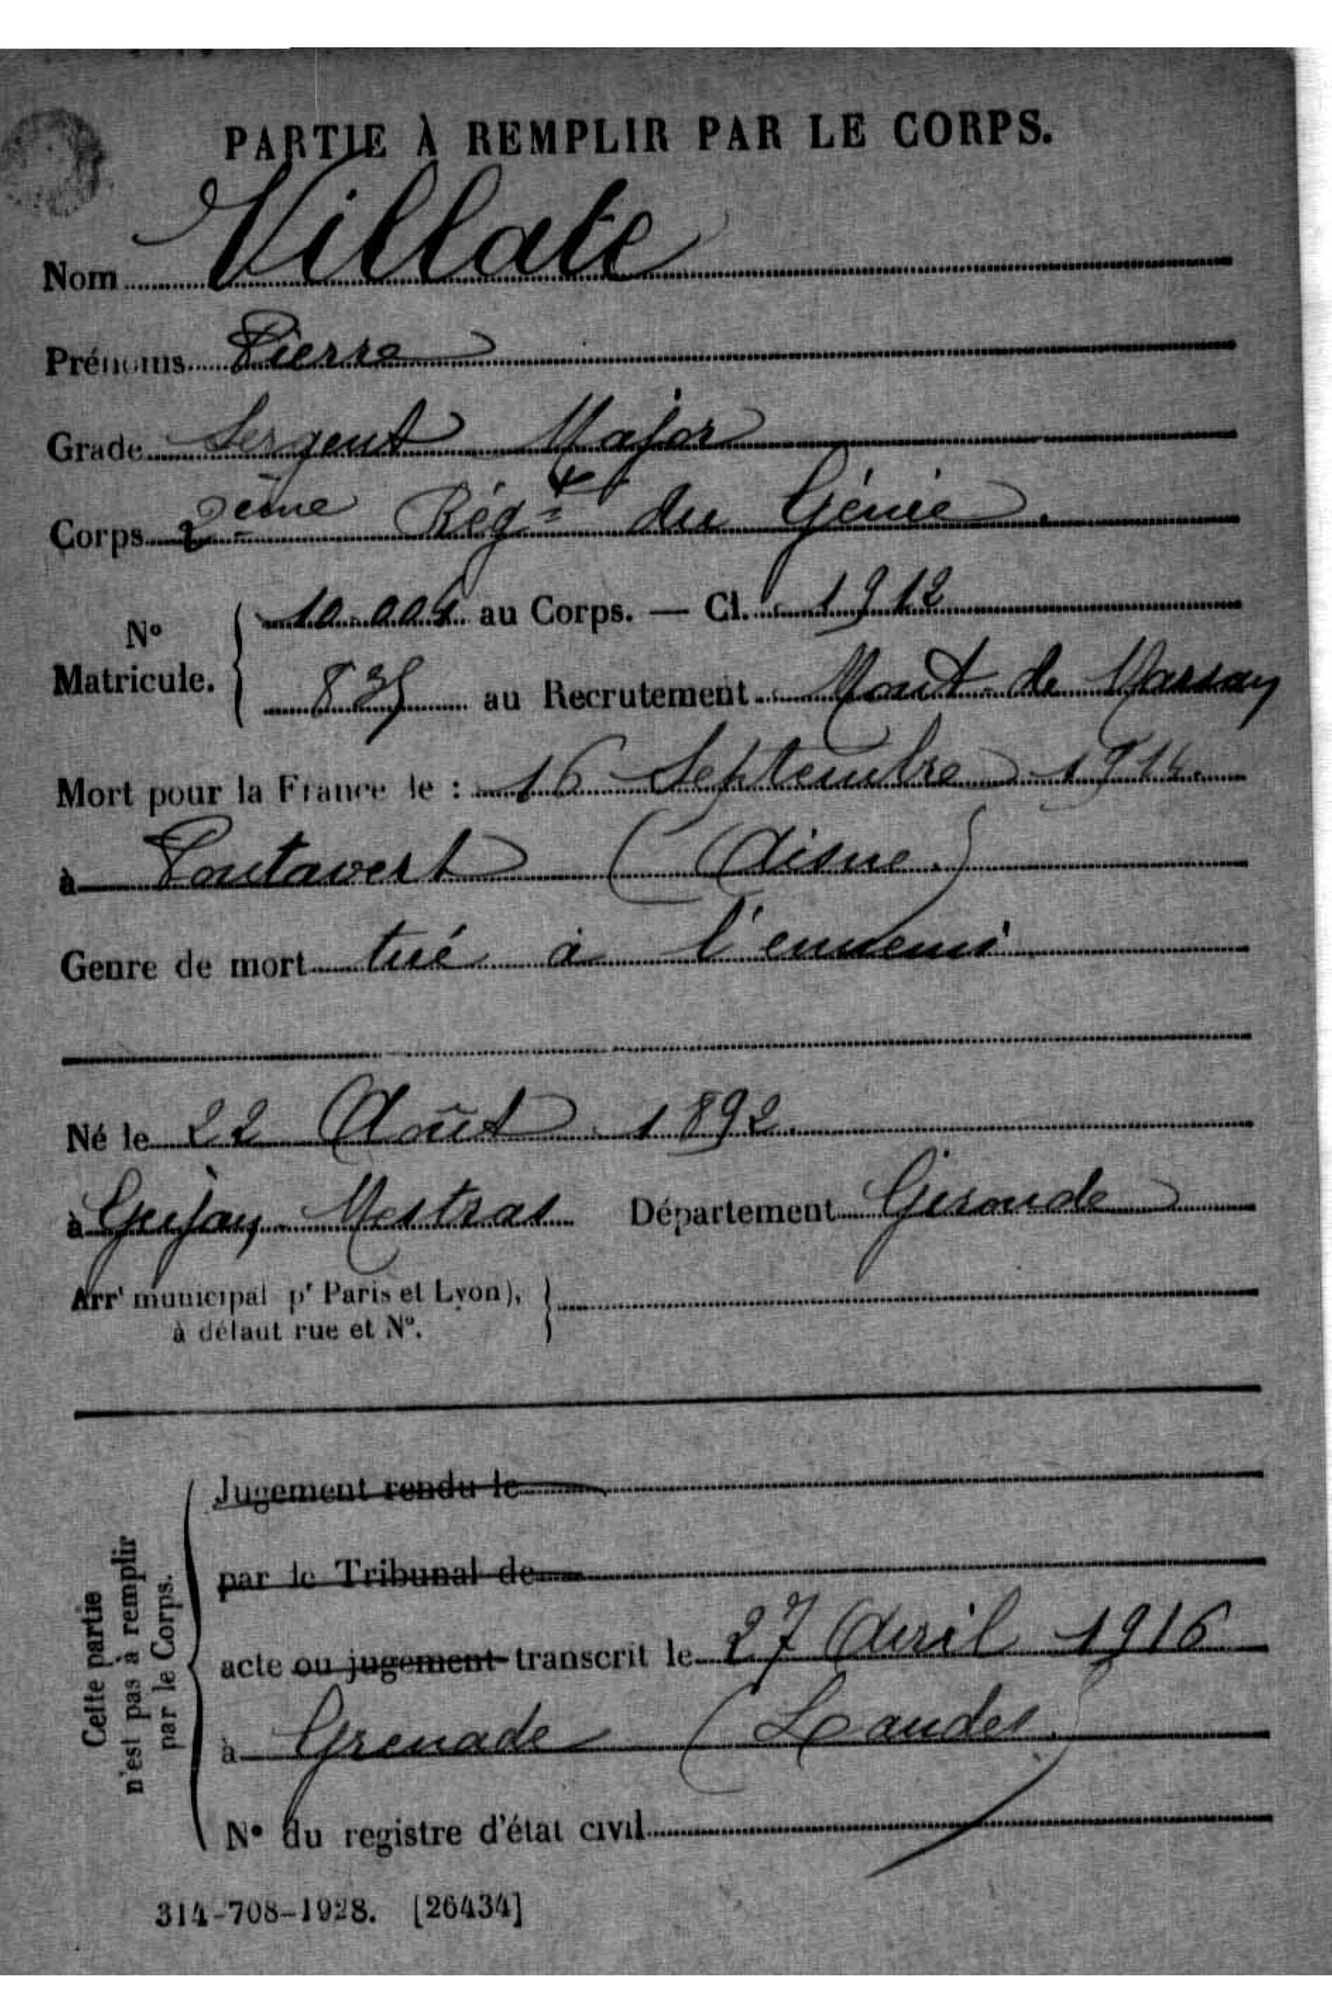 PARTIE À REMPLIR PAR LE CORPS.
Nom Villate
Prénoms Pierre
Grade Sergent Major
Corps 2ème Régt du Génie.
N° Matricule. 10.004 au Corps. — Cl. 1912
835 au Recrutement Mont de Marsan
Mort pour la France le : 16 Septembre 1914.
à Pontavert (Aisne.)
Genre de mort tué à l'ennemi
Né le 22 Août 1892.
à Gujan-Mestras Département Gironde
Arrt municipal pr Paris et Lyon),
à défaut rue et N°.
Cette partie
n'est pas à remplir
par le Corps.
Jugement rendu le
par le Tribunal de
acte ou jugement transcrit le 27 Avril 1916
à Grenade (Landes.)
N° du registre d'état civil
314-708-1928. [26434]